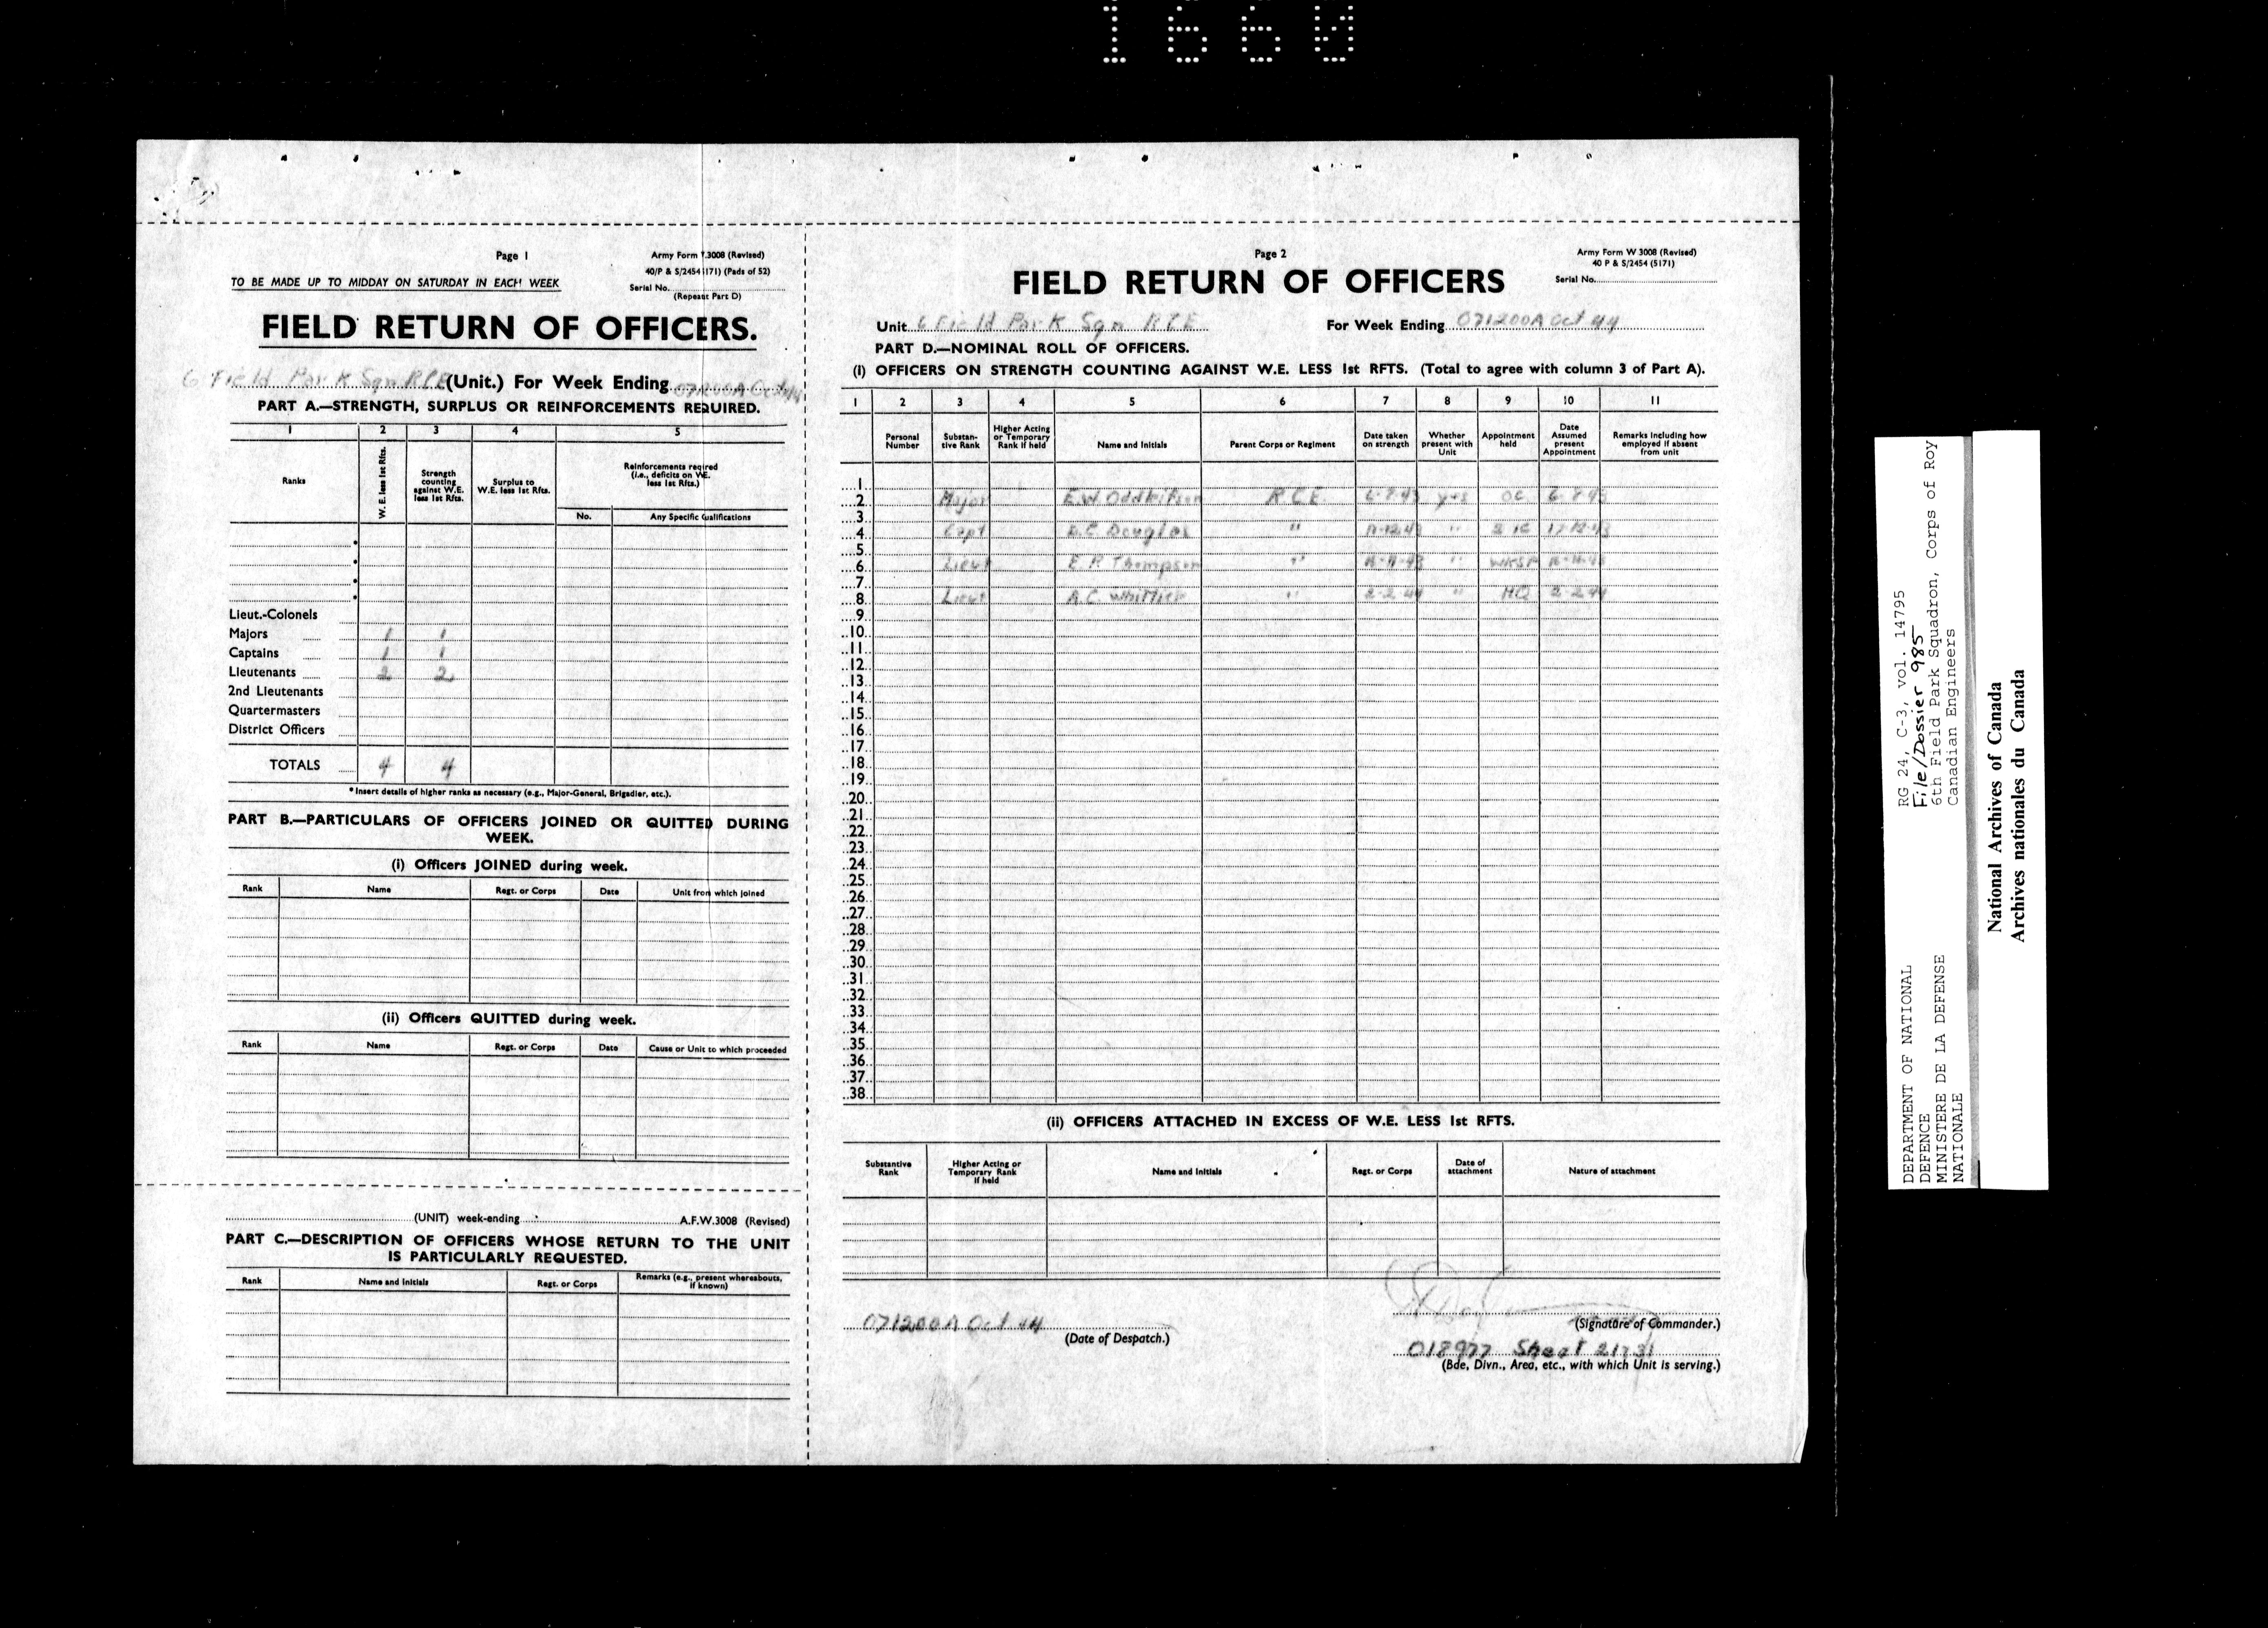 1660
Page 1
Army Form .3008 (Revised)
40/P & S/2454 171) (Pads of 52)
TO BE MADE UP TO MIDDAY ON SATURDAY IN EACH WEEK
Serial No.
(Repeat Part D)
FIELD RETURN OF OFFICERS.
6 Field Park Sqn RCE (Unit.) For Week Ending 071200A Oct 44
PART A.—STRENGTH, SURPLUS OR REINFORCEMENTS REQUIRED.
1 2 3 4 5
Ranks
W. E. less 1st Rfts.
Strength counting against W.E. less 1st Rfts.
Surplus to W.E. less 1st Rfts.
Reinforcements reqired (i.e., deficits on W.E. less 1st Rfts.)
No. Any Specific Qualifications
Lieut.-Colonels
Majors 1 1
Captains 1 1
Lieutenants 2 2
2nd Lieutenants
Quartermasters
District Officers
TOTALS 4 4
* Insert details of higher ranks as necessary (e.g., Major-General, Brigadier, etc.).
PART B.—PARTICULARS OF OFFICERS JOINED OR QUITTED DURING
WEEK.
(i) Officers JOINED during week.
Rank Name Regt. or Corps Date Unit from which joined
(ii) Officers QUITTED during week.
Rank Name Regt. or Corps Date Cause or Unit to which proceeded
(UNIT) week-ending A.F.W.3008 (Revised)
PART C.—DESCRIPTION OF OFFICERS WHOSE RETURN TO THE UNIT
IS PARTICULARLY REQUESTED.
Rank Name and Initials Regt. or Corps Remarks (e.g., present whereabouts, if known)
Page 2
Army Form W 3008 (Revised)
40 P & S/2454 (5171)
Serial No.
FIELD RETURN OF OFFICERS
Unit 6 Field Park Sqn RCE For Week Ending 071200A Oct 44
PART D.—NOMINAL ROLL OF OFFICERS.
(I) OFFICERS ON STRENGTH COUNTING AGAINST W.E. LESS 1st RFTS. (Total to agree with column 3 of Part A).
1 2 3 4 5 6 7 8 9 10 11
Personal Number
Substan- tive Rank
Higher Acting or Temporary Rank if held
Name and Initials
Parent Corps or Regiment
Date taken on strength
Whether present with Unit
Appointment held
Date Assumed present Appointment
Remarks including how employed if absent from unit
1
2 Major E.W. RCE yes OC
3
4 Capt Douglas " 11-12-43 " 2 IC 11-12-43
5
6 Lieut E.P. Thompson " " WKSP
7
8 Lieut A.C. Whittier " 2-2-44 " HQ 2-2-44
9
10
11
12
13
14
15
16
17
18
19
20
21
22
23
24
25
26
27
28
29
30
31
32
33
34
35
36
37
38
(ii) OFFICERS ATTACHED IN EXCESS OF W.E. LESS 1st RFTS.
Substantive Rank
Higher Acting or Temporary Rank if held
Name and Initials
Regt. or Corps
Date of attachment
Nature of attachment
071200A Oct 44
(Date of Despatch.)
(Signature of Commander.)
018977 Sheet 21731
(Bde, Divn., Area, etc., with which Unit is serving.)
DEPARTMENT OF NATIONAL
DEFENCE
MINISTERE DE LA DEFENSE
NATIONALE
RG 24, C-3, vol. 14795
File/Dossier 985
6th Field Park Squadron, Corps of Roy
Canadian Engineers
National Archives of Canada
Archives nationales du Canada